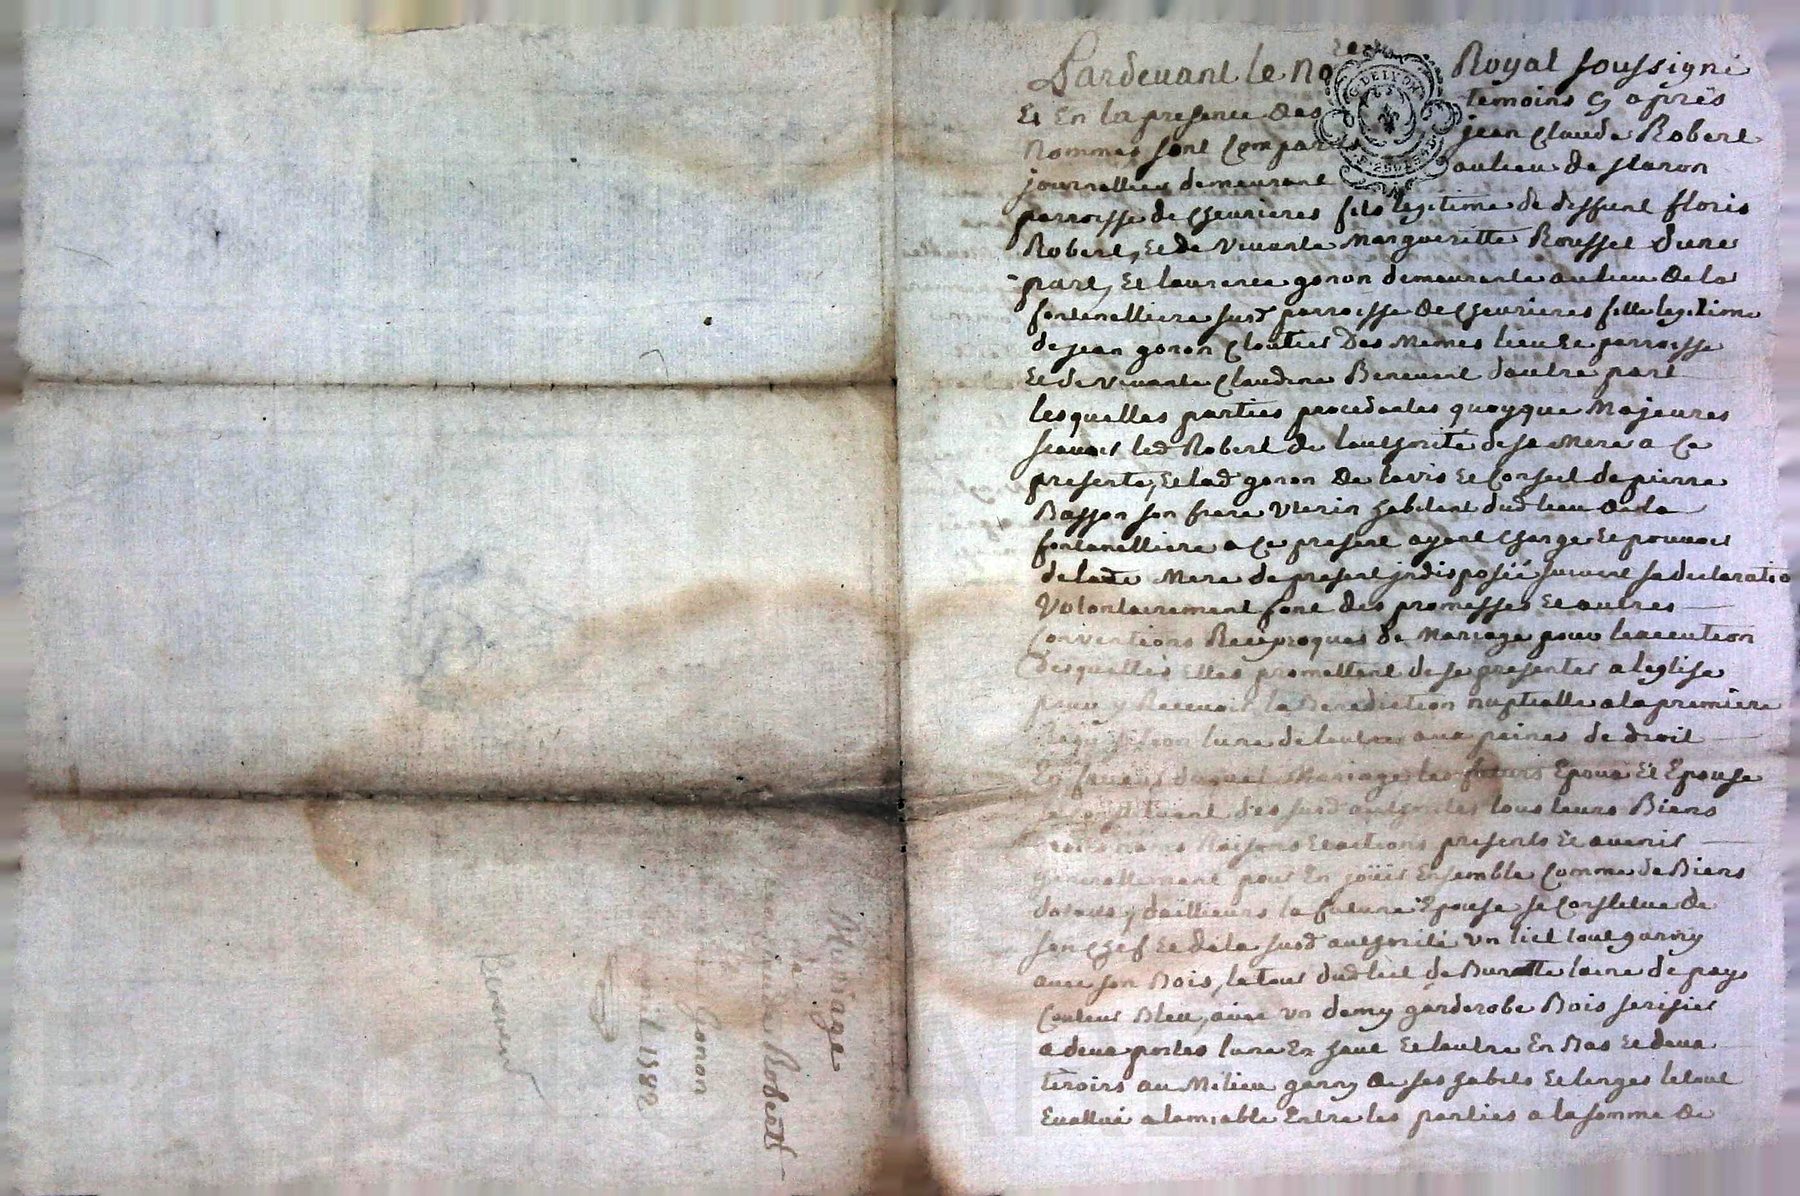 Pardevant le No Royal soussigné
Et En la presence des temoins cy après
Nommés sont Compar jean Claude Robert
journallier demeurant au lieu de
parroisse de Chevrieres fils legitime de deffunt floris
Robert, Et de vivante Margueritte Rousset d'une
part, Et laurence gonon demeurante au lieu de la
fontanelliere susd parroisse de Chevrieres fille legitime
de jean gonon Cloutier des Memes lieu Et parroisse
Et de vivante Claudine Benevent d'autre part
lesquelles parties procedantes quoyque Majeures
scavoir led Robert de l'authorité de sa Mere a Ce
presente, Et lad gonon de lavis Et Conseil de pierre
Basson son frere Uterin habitant dud lieu de la
fontanelliere a Ce present ayant Charge Et pouvoir
de lade Mere de present indisposée suivant sa declaratio
Volontairement font des promesses Et autres
Conventions Reciproques de Mariage pour lexecution
desquelles Elles promettent de se presenter a leglise
pour y Recevoir la Benediction nuptialle a la premiere
Requisition lune de lautre aux peines de droit
En faveur duquel Mariage les futurs Epoux Et Epouse
se Constituent des susd authorités tous leurs Biens
droits noms Raisons Et actions presents Et avenir
generallement pour En joüir Ensemble Comme de Biens
dotaux, d'aillieurs la future Epouse se Constitue de
son Chef Et de la susd authorité un lict tout garny
avec son Bois, le tour dud lict de Buratte laine de pays
Couleur Bleu, avec un demy garderobe Bois serisier
a deux portes lune En haut Et lautre En Bas Et deux
tiroirs au Milieu garny de ses habits Et linges le tout
Evallué a lamiable Entre les parties a la somme de
Mariage
de
Claude Robert
Gonon
1782
Benevent
G DE LYON